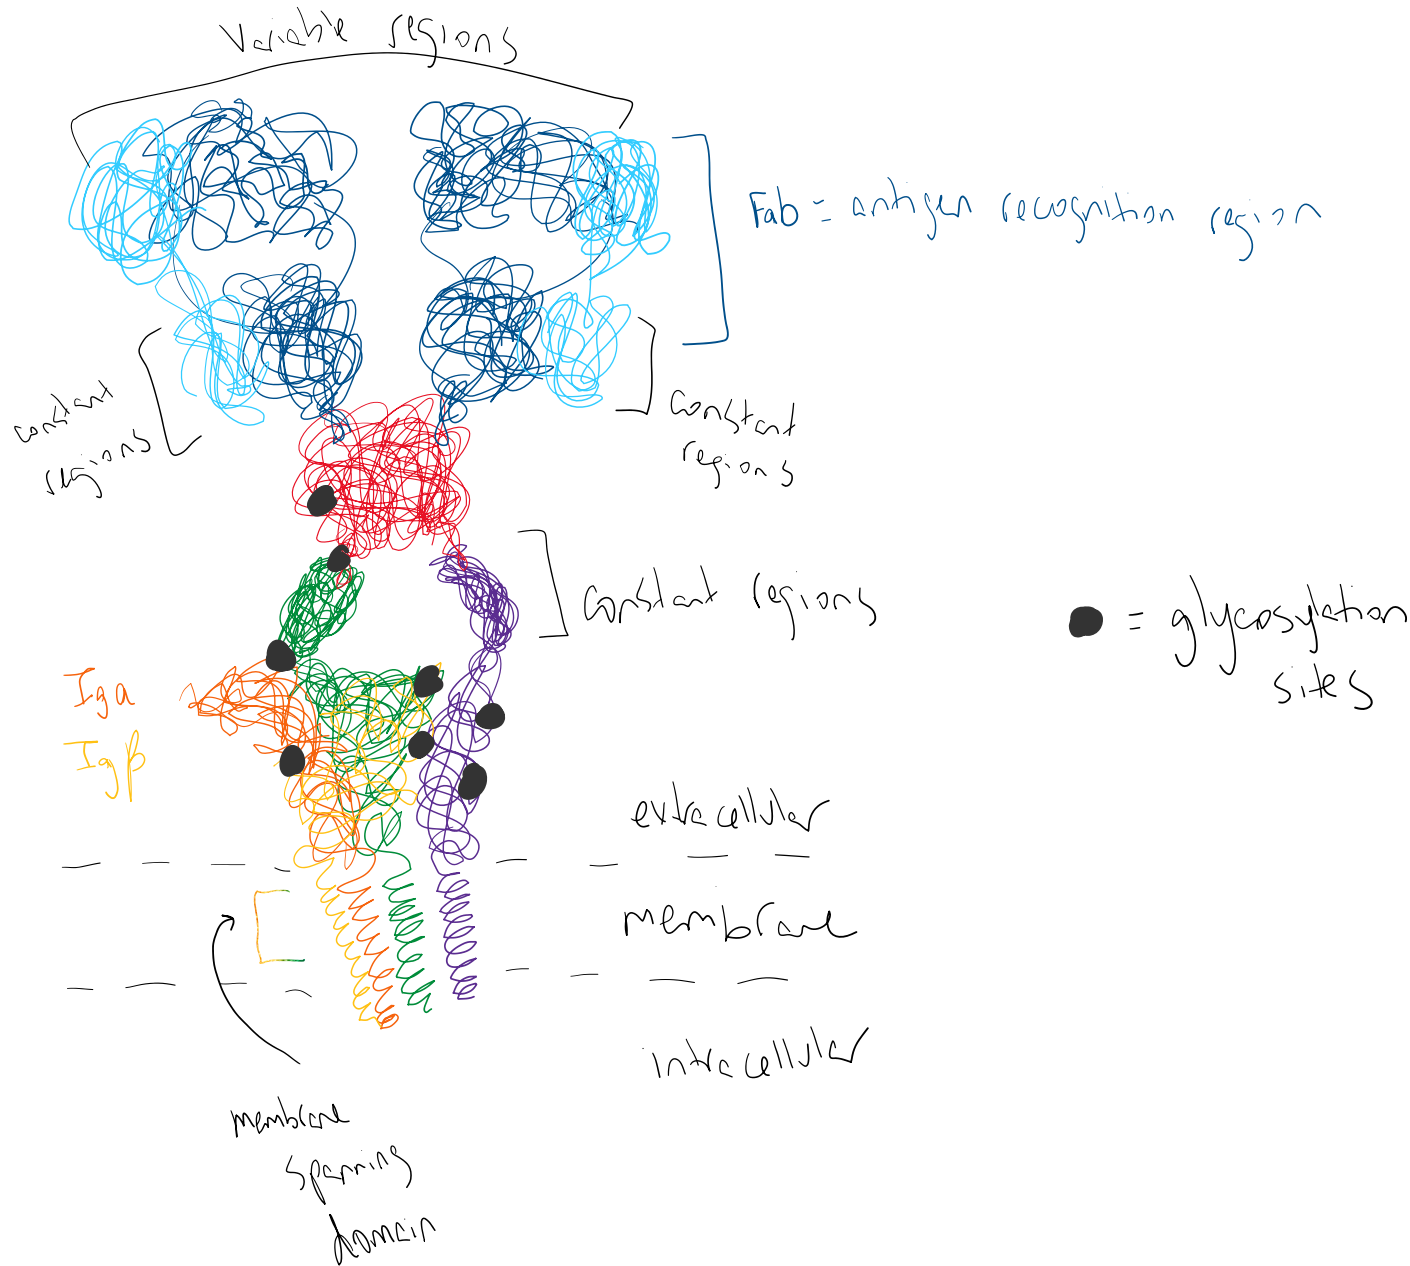 Variable regions
Fab = antigen recognition region
constant
regions
constant
regions
constant regions
= glycosylation
sites
Igα
Igβ
extracellular
membrane
intracellular
membrane
spanning
domain